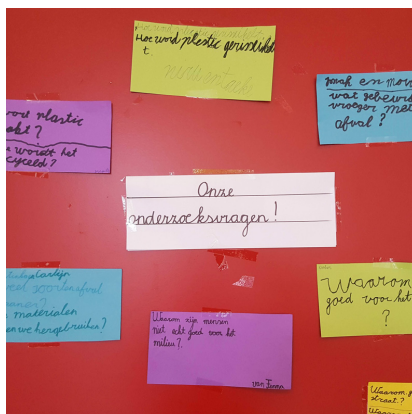 Hoe word plastic gerecycled
t
Jmak en
wat gebeurde
vroeger met
afval?
word plastic
akt?
wordt het
cyceld?
Onze
onderzoeksvragen!
soorten afval
materialen
en we hergebruiken?
Waarom zijn mensen
niet echt goed voor het
milieu?
van Fenna
Waarom
goed voor het
?
Waarom
straat?
Waarom